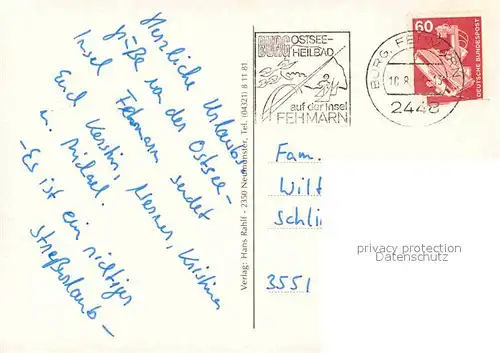 Herzliche Urlaubs-
grüße von der Ostsee-
Insel Fehmarn sendet
Euch Kerstin, Werner, Kristina
u. Michael.
-Es ist ein richtiger
Verlag: Hans Rahlf - 2350 Neumünster, Tel. (04321) 8 11 81
BURG OSTSEE-
HEILBAD
auf der Insel
FEHMARN
BURG, FEHMARN
10.8.
2448
60
DEUTSCHE BUNDESPOST
Fam.
Wilt
Schli
3551
privacy protection
Datenschutz